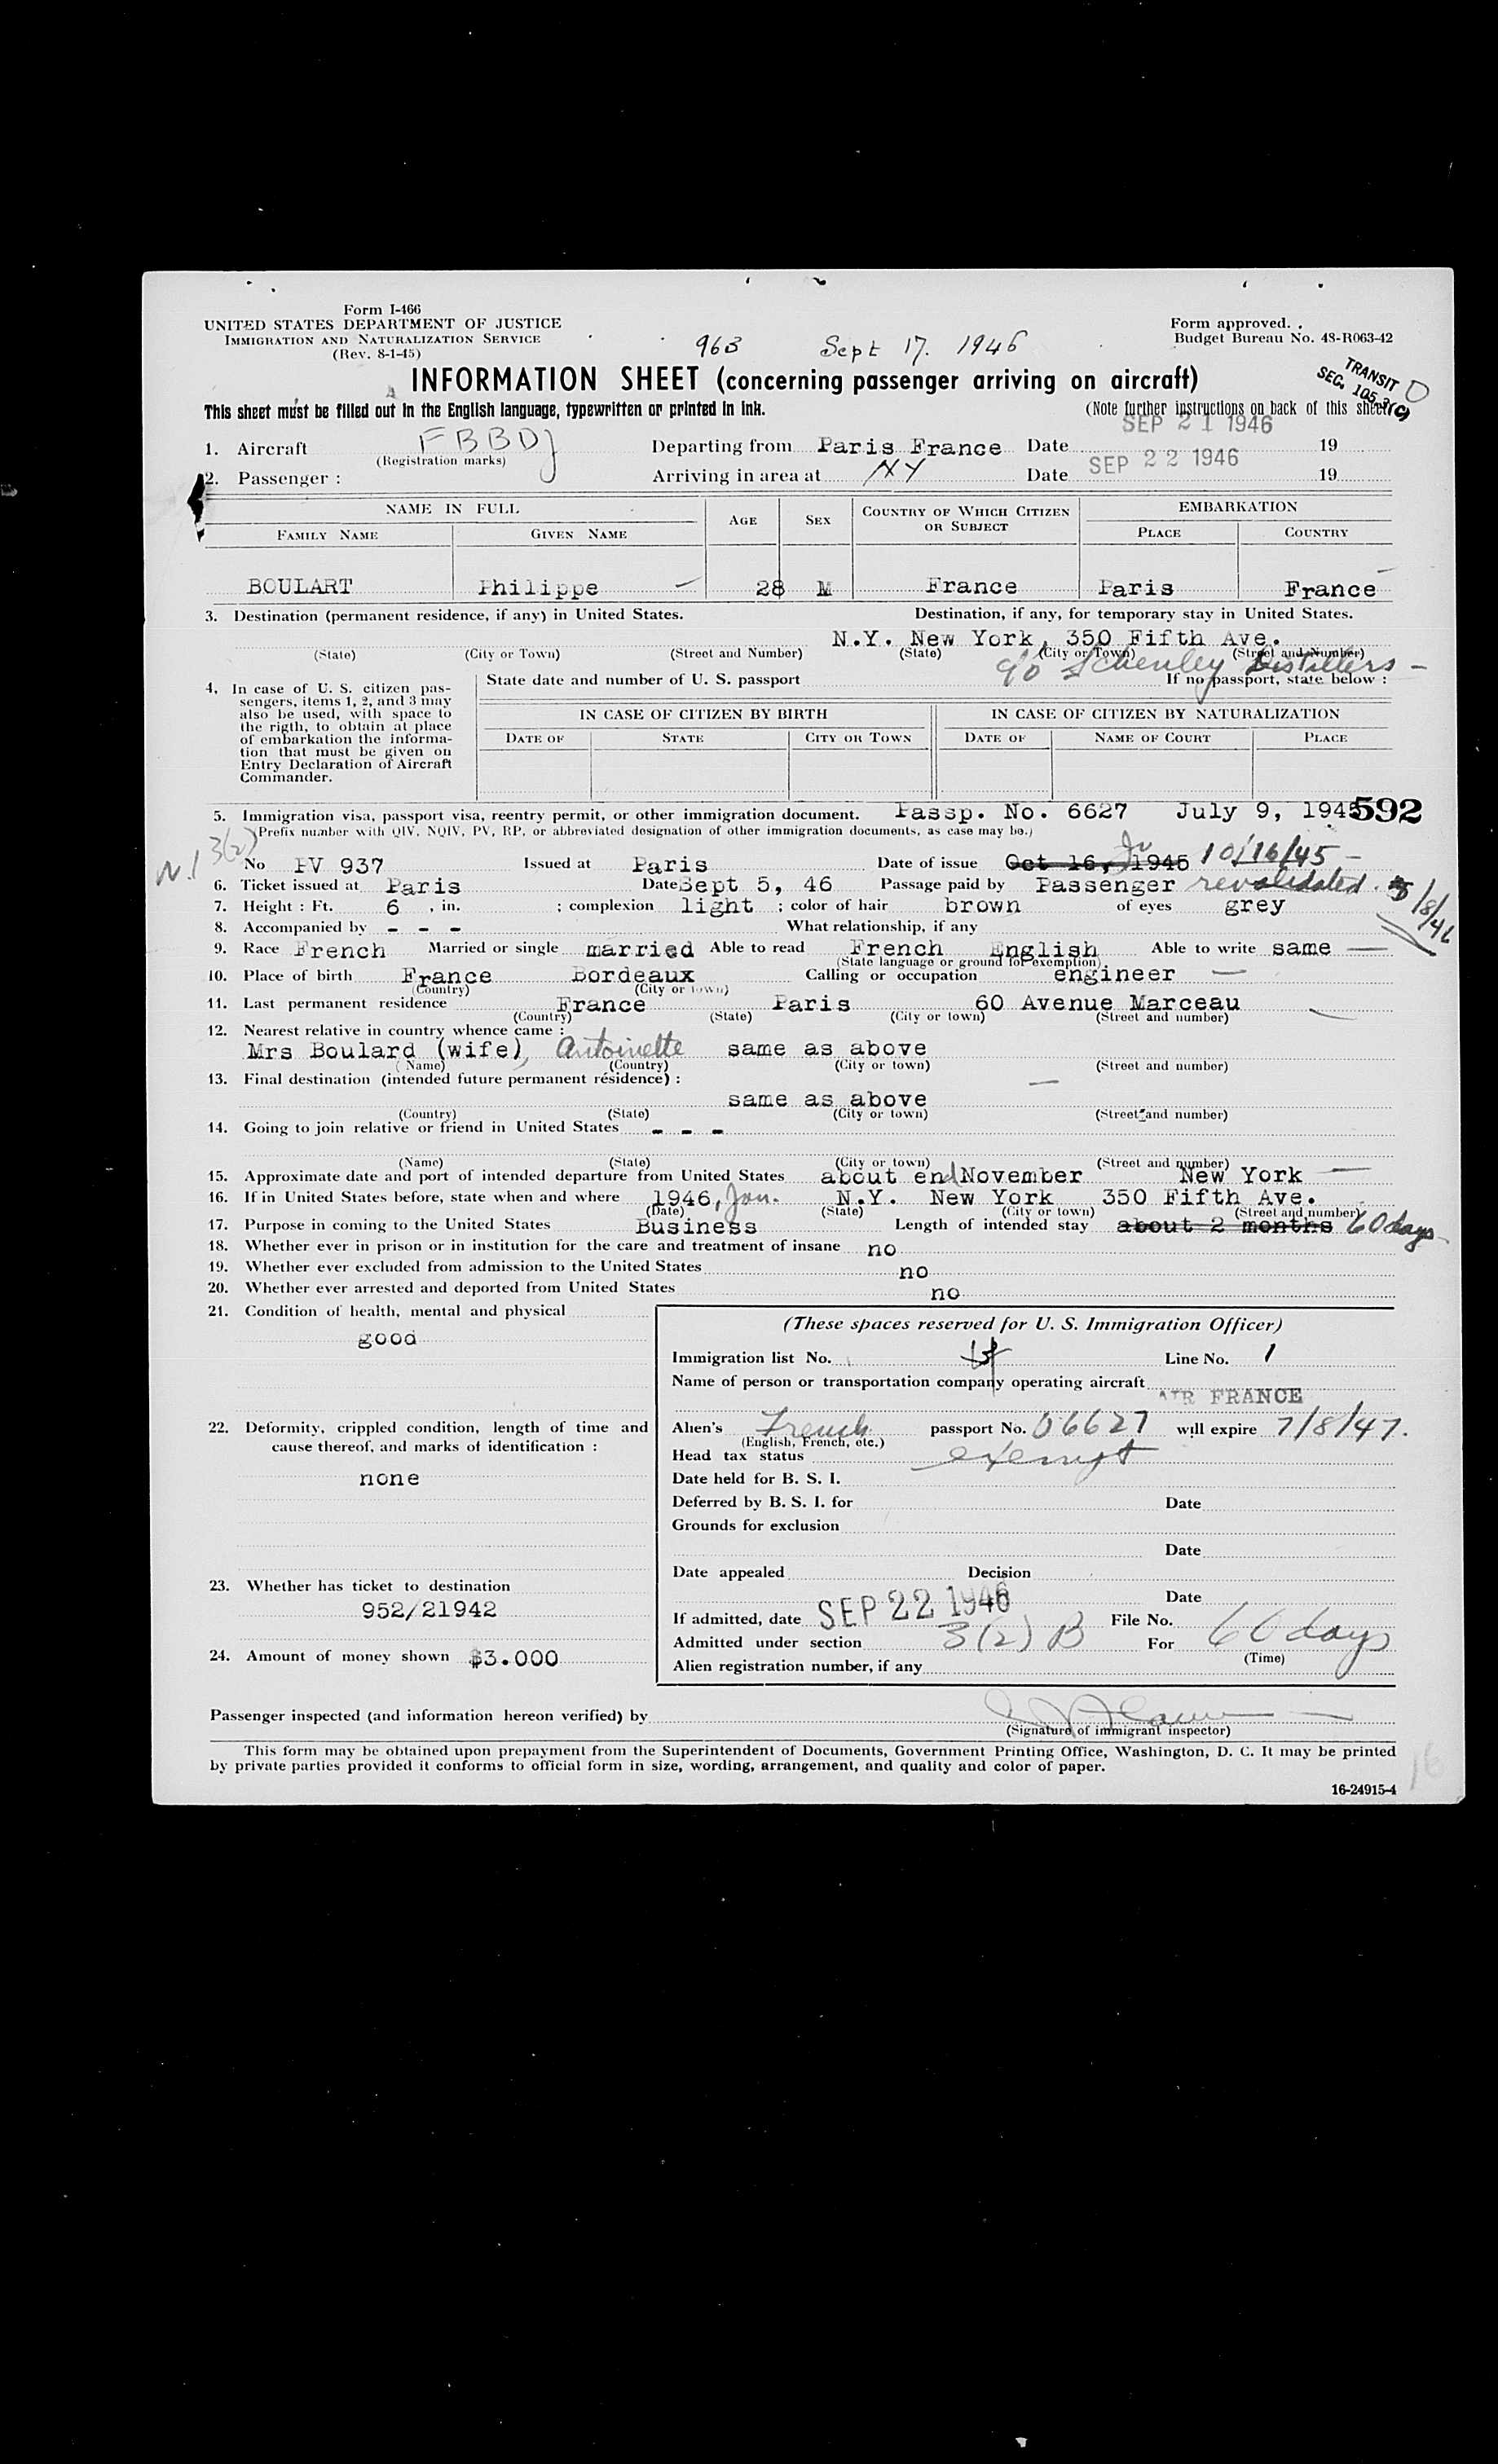 Form I-466
UNITED STATES DEPARTMENT OF JUSTICE
IMMIGRATION AND NATURALIZATION SERVICE
(Rev. 8-1-45)
Form approved.
Budget Bureau No. 43-R063-42
963 Sept 17. 1946
INFORMATION SHEET (concerning passenger arriving on aircraft)
TRANSIT
SEC. 105.3(C)
This sheet must be filled out in the English language, typewritten or printed in ink.
(Note further instructions on back of this sheet)
SEP 21 1946
1. Aircraft FBBDJ Departing from Paris France Date 19
(Registration marks)
2. Passenger : Arriving in area at NY Date SEP 22 1946 19
NAME IN FULL AGE SEX COUNTRY OF WHICH CITIZEN OR SUBJECT EMBARKATION
FAMILY NAME GIVEN NAME PLACE COUNTRY
BOULART Philippe 28 M France Paris France
3. Destination (permanent residence, if any) in United States. Destination, if any, for temporary stay in United States.
N.Y. New York, 350 Fifth Ave.
(State) (City or Town) (Street and Number) (State) (City or Town) (Street and Number)
c/o Schenley Distillers
4. In case of U. S. citizen passengers, items 1, 2, and 3 may
also be used, with space to
the rigth, to obtain at place
of embarkation the information
that must be given on
Entry Declaration of Aircraft
Commander.
State date and number of U. S. passport If no passport, state below :
IN CASE OF CITIZEN BY BIRTH IN CASE OF CITIZEN BY NATURALIZATION
DATE OF STATE CITY OR TOWN DATE OF NAME OF COURT PLACE
5. Immigration visa, passport visa, reentry permit, or other immigration document. Passp. No. 6627 July 9, 1945 592
(Prefix number with QIV, NQIV, PV, RP, or abbreviated designation of other immigration documents, as case may be.)
3(2)
No PV 937 Issued at Paris Date of issue Oct 16, 1945 10/16/45
6. Ticket issued at Paris Date Sept 5, 46 Passage paid by Passenger revalidated 5/8/46
7. Height : Ft. 6 , in. ; complexion light ; color of hair brown of eyes grey
8. Accompanied by - - - What relationship, if any
9. Race French Married or single married Able to read French English Able to write same
(State language or ground for exemption)
10. Place of birth France Bordeaux Calling or occupation engineer
(Country) (City or town)
11. Last permanent residence France Paris 60 Avenue Marceau
(Country) (State) (City or town) (Street and number)
12. Nearest relative in country whence came :
Mrs Boulard (wife), Antoinette same as above
(Name) (Country) (City or town) (Street and number)
13. Final destination (intended future permanent résidence) :
same as above
(Country) (State) (City or town) (Street and number)
14. Going to join relative or friend in United States - - -
(Name) (State) (City or town) (Street and number)
15. Approximate date and port of intended departure from United States about end November New York
16. If in United States before, state when and where 1946, Jan. N.Y. New York 350 Fifth Ave.
(Date) (State) (City or town) (Street and number)
17. Purpose in coming to the United States Business Length of intended stay about 2 months 60 days
18. Whether ever in prison or in institution for the care and treatment of insane no
19. Whether ever excluded from admission to the United States no
20. Whether ever arrested and deported from United States no
21. Condition of health, mental and physical
good
22. Deformity, crippled condition, length of time and
cause thereof, and marks of identification :
none
23. Whether has ticket to destination
952/21942
24. Amount of money shown $3.000
(These spaces reserved for U. S. Immigration Officer)
Immigration list No. Line No. 1
Name of person or transportation company operating aircraft
AIR FRANCE
Alien's French passport No. 06627 will expire 7/8/47.
(English, French, etc.)
Head tax status exempt
Date held for B. S. I.
Deferred by B. S. I. for Date
Grounds for exclusion
Date
Date appealed Decision
Date
If admitted, date SEP 22 1946 File No.
Admitted under section 3(2) B For 60 days
(Time)
Alien registration number, if any
Passenger inspected (and information hereon verified) by
(Signature of immigrant inspector)
This form may be obtained upon prepayment from the Superintendent of Documents, Government Printing Office, Washington, D. C. It may be printed
by private parties provided it conforms to official form in size, wording, arrangement, and quality and color of paper.
16
16-24915-4